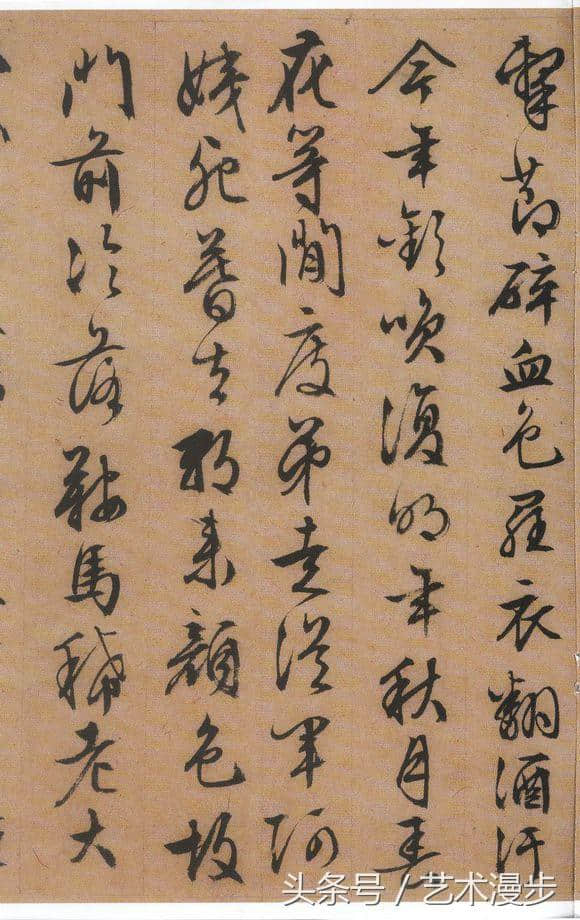 擊節碎血色羅衣翻酒汙
今年歡咲復明年秋月春
花等閒度弟走從軍阿
姨死暮去朝来顏色故
門前冷落鞍馬稀老大
头条号 / 艺术漫步